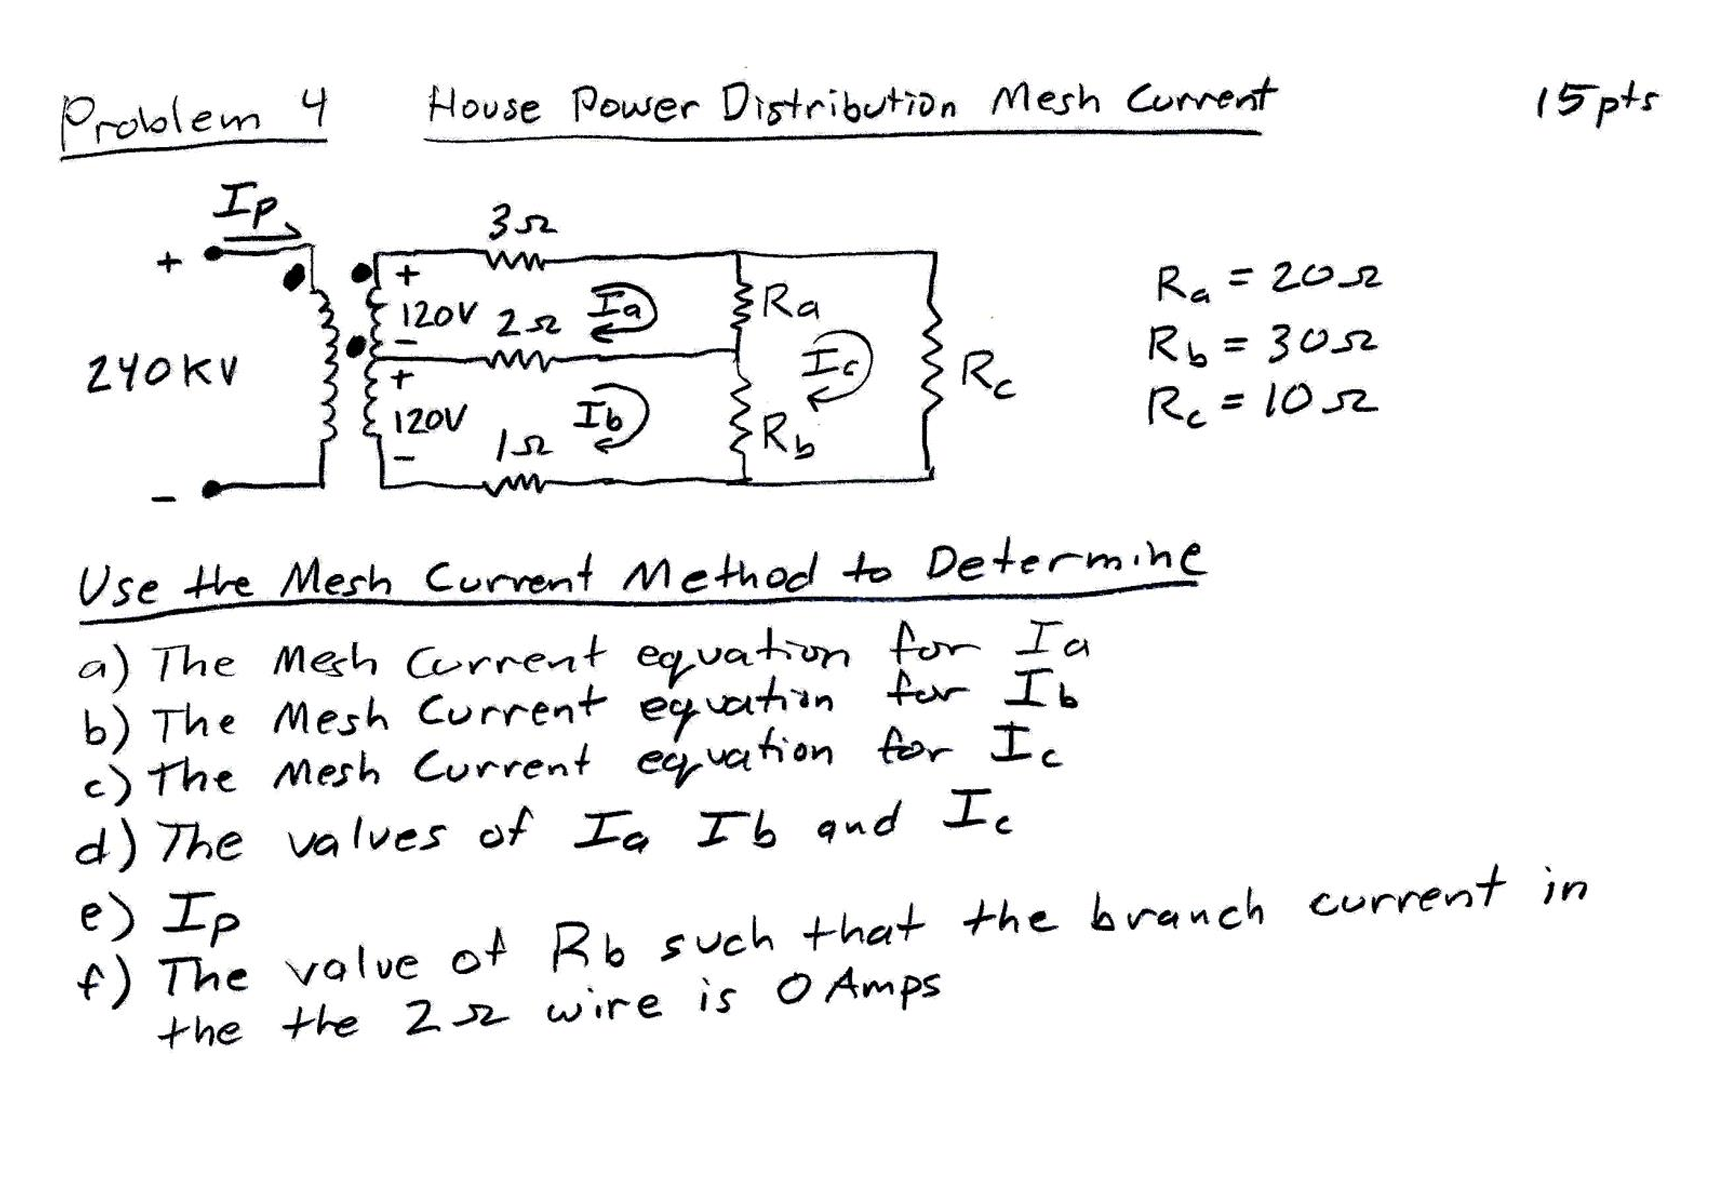 Problem 4 House Power Distribution Mesh Current 15pts
Ip
3Ω
+
+
120V 2Ω Ia Ra Ra = 20Ω
-
240KV + Ic Rc Rb = 30Ω
120V Ib Rb Rc = 10Ω
1Ω
-
-
Use the Mesh Current Method to Determine
a) The Mesh Current equation for Ia
b) The Mesh Current equation for Ib
c) The Mesh Current equation for Ic
d) The values of Ia Ib and Ic
e) Ip
f) The value of Rb such that the branch current in
the the 2Ω wire is 0 Amps